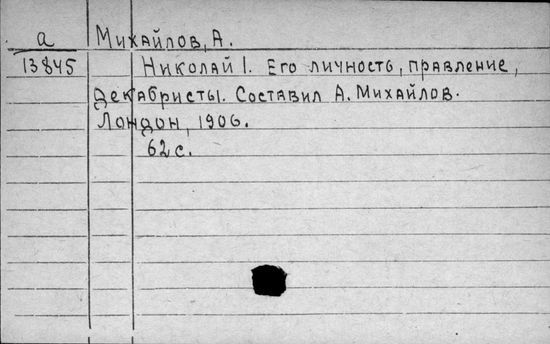 а Михайлов, А.
13845 Николай I. Его личность, правление,
декабристы. Составил А. Михайлов.
Лондон, 1906.
62 с.